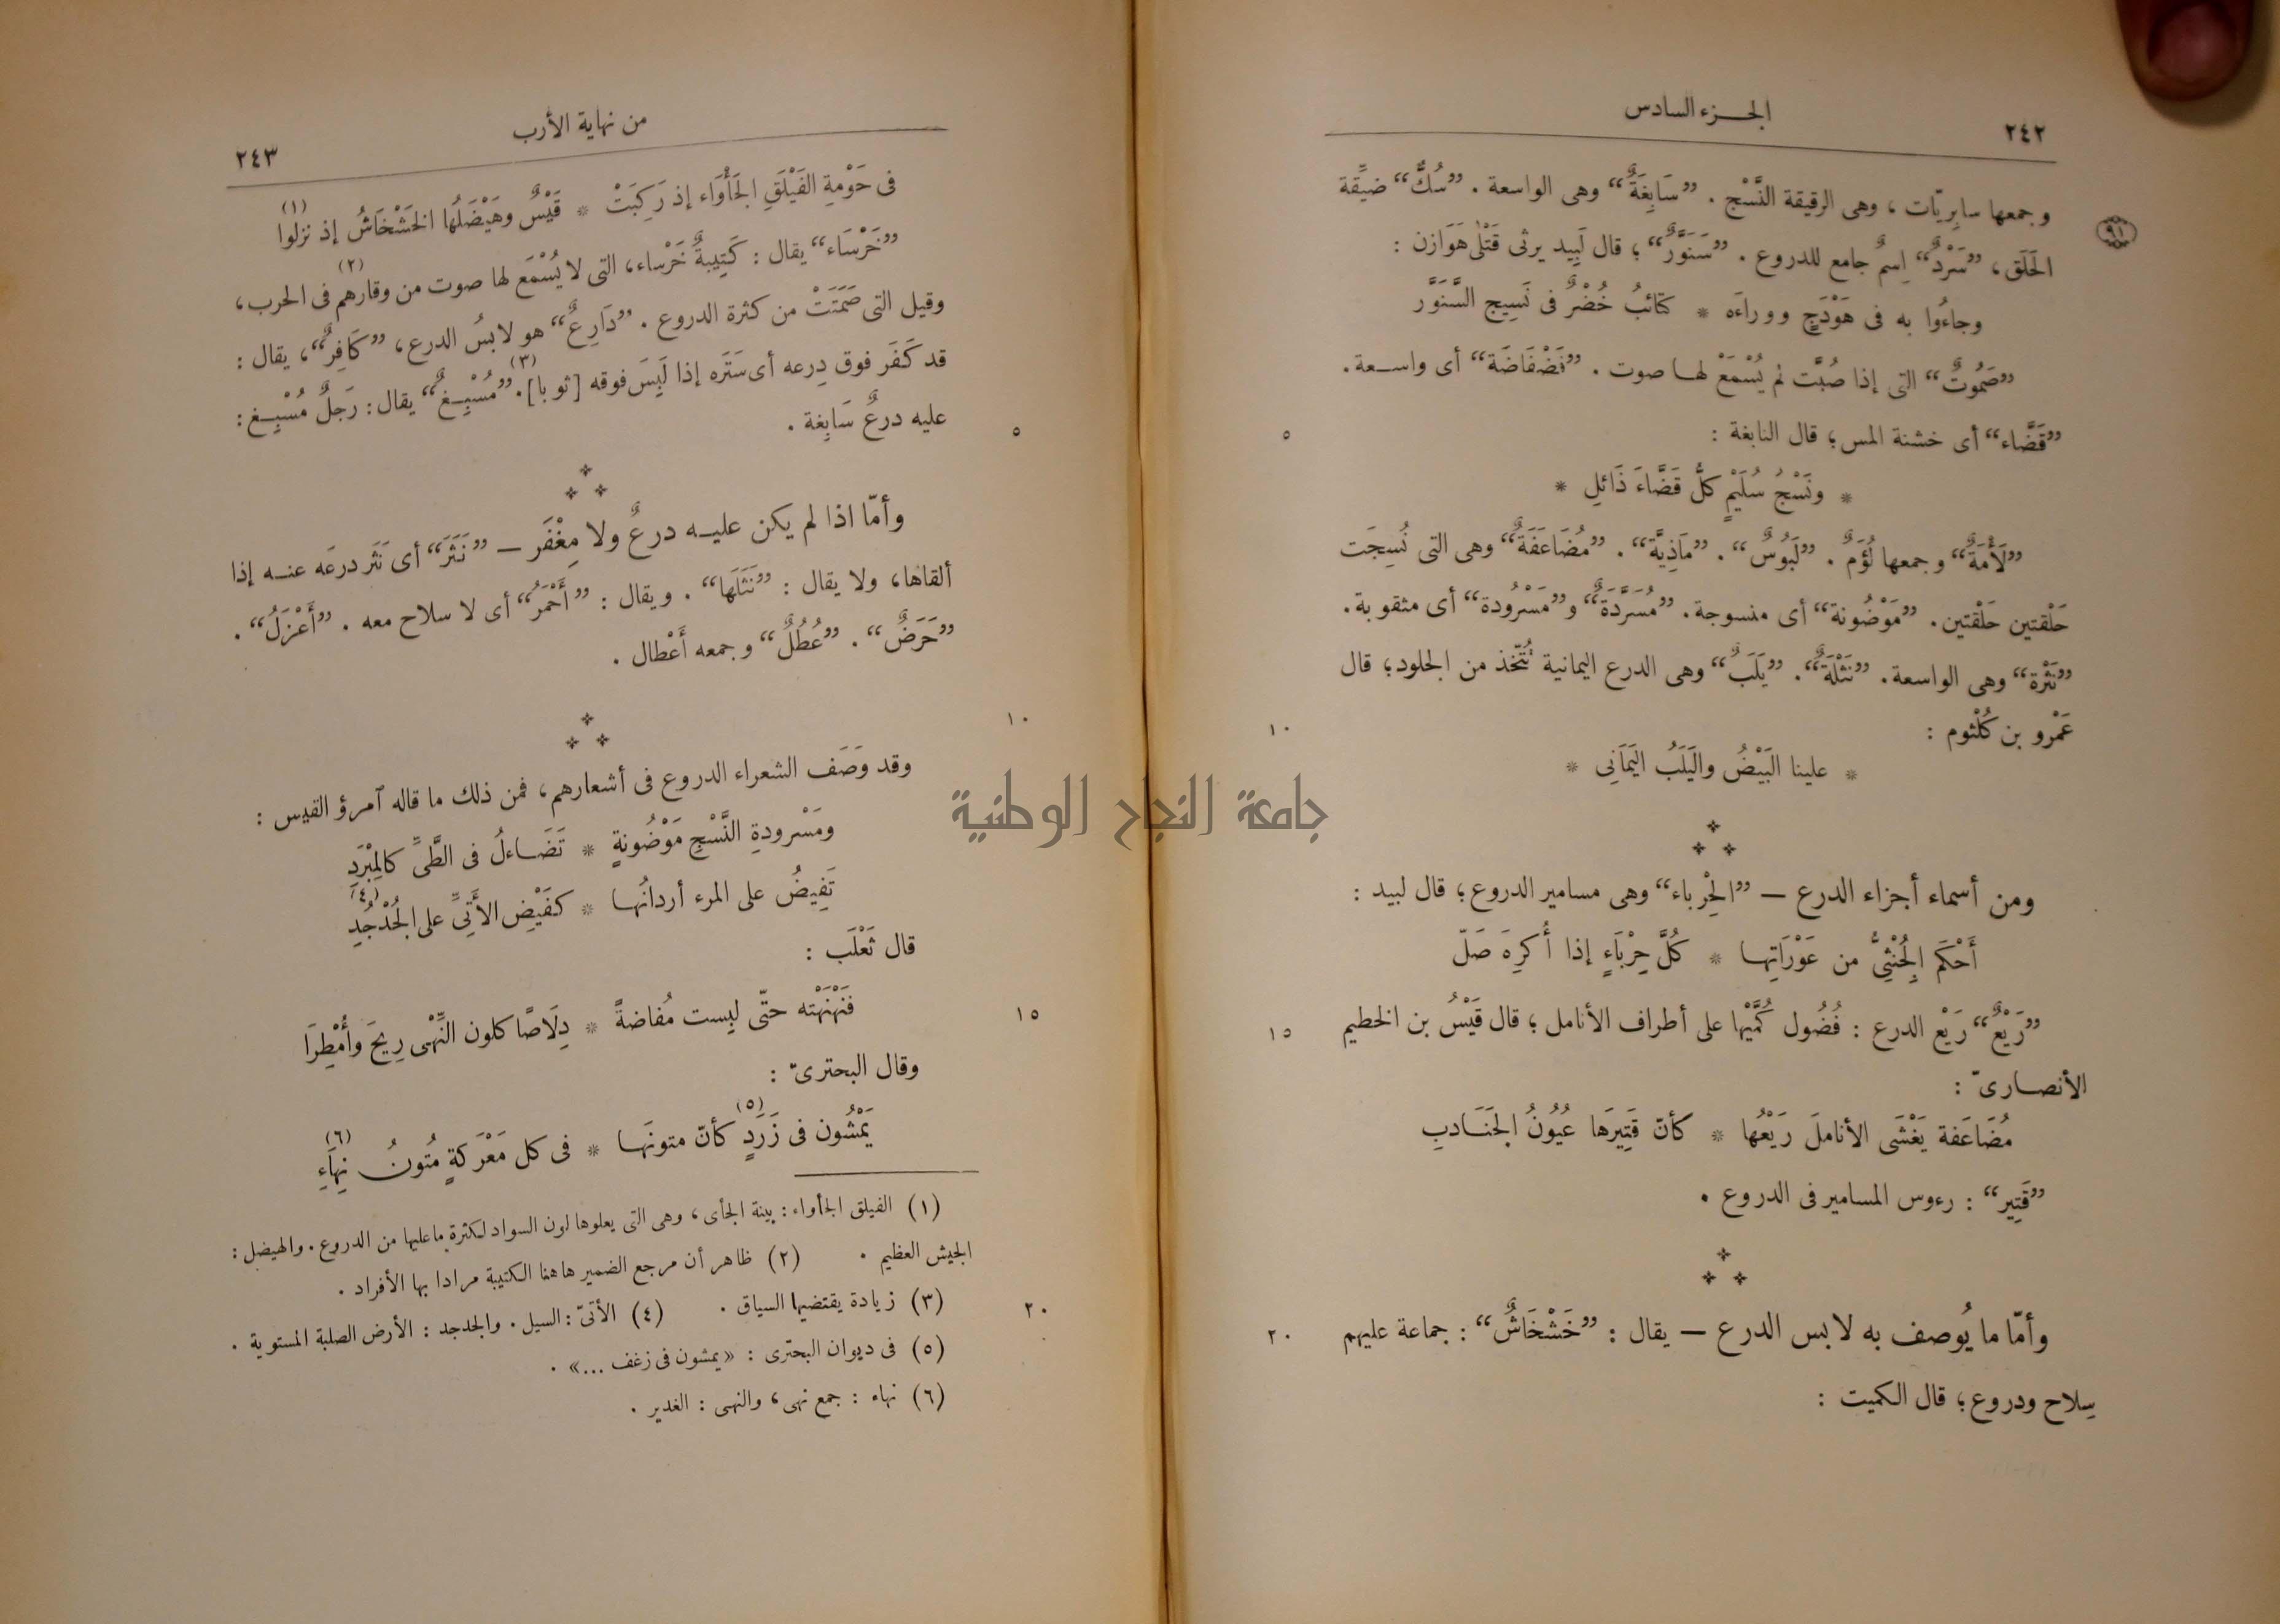 الجزء السادس
٢٤٢
وجمعها سابِريّات ، وهى الرقيقة النَّسْج . ”سَابِغَةٌ“ وهى الواسعة . ”سُكٌّ“ ضيِّقة
٩١
الحَلَق، ”سَرْدٌ“ اِسمٌ جامع للدروع . ”سَنَوَّرٌ“ ؛ قال لَبِيد يرثى قَتْلَى هَوَازن :
وجاءُوا به فى هَوْدَجٍ ووراءَه * كتائبُ خُضْرٌ فى نَسِيج السَّنَوَّر
”صَمُوتٌ“ التى إذا صُبَّت لم يُسْمَعْ لها صوت . ”فَضْفَاضَة“ أى واسعة .
”قَضَّاء“ أى خشنة المس؛ قال النابغة :
٥
* ونَسْجُ سُلَيْمٍ كلُّ قَضَّاءَ ذَائلِ *
”لَأْمَةٌ“ وجمعها لُؤَمٌ . ”لَبُوسٌ“ . ”مَاذِيَّة“ . ”مُضَاعَفَةٌ“ وهى التى نُسِجَت
حَلْقتين حَلْقتين . ”مَوْضُونة“ أى منسوجة . ”مُسَرَّدَةٌ“ و”مَسْرُودة“ أى مثقوبة .
”نَثْرة“ وهى الواسعة . ”نَثْلَةٌ“. ”يَلَبٌ“ وهى الدرع اليمانية تُتَّخذ من الجلود؛ قال
عَمْرو بن كُلْثوم :
١٠
* علينا البَيْضُ واليَلَبُ اليَمَانِى *
ومن أسماء أجزاء الدرع — ”الحِرْباء“ وهى مسامير الدروع؛ قال لبيد :
أَحْكَم الجُنْثِىُّ من عَوْرَاتِها * كُلَّ حِرْبَاءٍ إذا أُكرِهَ صَلّ
”رَيْعٌ“ رَيْع الدرع : فُضُول كُمَّيْها على أطراف الأنامل ؛ قال قَيْسُ بن الخطيم
١٥
الأنصارىّ :
مُضَاعَفة يَغْشَى الأناملَ رَيْعُها * كأنّ قَتِيرَها عُيُونُ الجَنَادبِ
”قَتِير“ : رءوس المسامير فى الدروع .
وأمّا ما يُوصف به لابس الدرع — يقال : ”خَشْخَاشٌ“ : جماعة عليهم
٢٠
سِلاح ودروع؛ قال الكميت :
من نهاية الأرب
٢٤٣
فى حَوْمةِ الفَيْلَقِ الجَأْوَاء إذ رَكِبَتْ * قَيْسٌ وهَيْضَلُها الخَشْخَاشُ إذ نزلوا (١)
”خَرْسَاء“ يقال : كَتِيبةٌ خَرْساء، التى لا يُسْمَع لها صوت من وقارهم (٢) فى الحرب،
وقيل التى صَمَتَتْ من كثرة الدروع . ”دَارِعٌ“ هو لابسُ الدرع، ”كَافِرٌ“، يقال :
قد كَفَر فوق دِرعه أى سَتَره إذا لَبِسَ فوقه [ثوبا] (٣). ”مُسْبِغٌ“ يقال : رَجلٌ مُسْبِغ :
عليه درعٌ سَابِغة .
٥
وأمّا اذا لم يكن عليه درعٌ ولا مِغْفَر — ”نَثَرَ“ أى نَثَر درعَه عنه إذا
ألقاها، ولا يقال : ”نَثَلَهَا“ . ويقال : ”أَحْمَرُ“ أى لا سلاح معه . ”أَعْزَلُ“ .
”حَرَضٌ“ . ”عُطُلٌ“ وجمعه أَعْطال .
١٠
وقد وَصَف الشعراء الدروع فى أشعارهم، فمن ذلك ما قاله آمرؤ القيس :
ومَسْرودةِ النَّسْجِ مَوْضُونةٍ * تَضَاءلُ فى الطَّىِّ كالمِبْرَدِ
تَفِيضُ على المرء أردانُها * كفَيْضِ الأَتِىِّ على الجُدْجُدِ (٤)
قال ثَعْلَب :
فنَهْنَهْته حتّى لبِست مُفاضةً * دِلَاصًا كلون النِّهْى رِيحَ وأُمْطِرَا
١٥
وقال البحترىّ :
يَمْشُون فى زَرَدٍ (٥) كأنّ متونَها * فى كل مَعْرَكةٍ مُتونُ نِهَاءِ (٦)
(١) الفيلق الجأواء : بينة الجأى، وهى التى يعلوها لون السواد لكثرة ما عليها من الدروع . والهيضل :
الجيش العظيم . (٢) ظاهر أن مرجع الضمير هاهنا الكتيبة مرادا بها الأفراد .
(٣) زيادة يقتضيها السياق . (٤) الأتىّ : السيل . والجدجد : الأرض الصلبة المستوية .
٢٠
(٥) فى ديوان البحترى : «يمشون فى زغف ...» .
(٦) نهاء : جمع نهى، والنهى : الغدير .
جامعة النجاح الوطنية